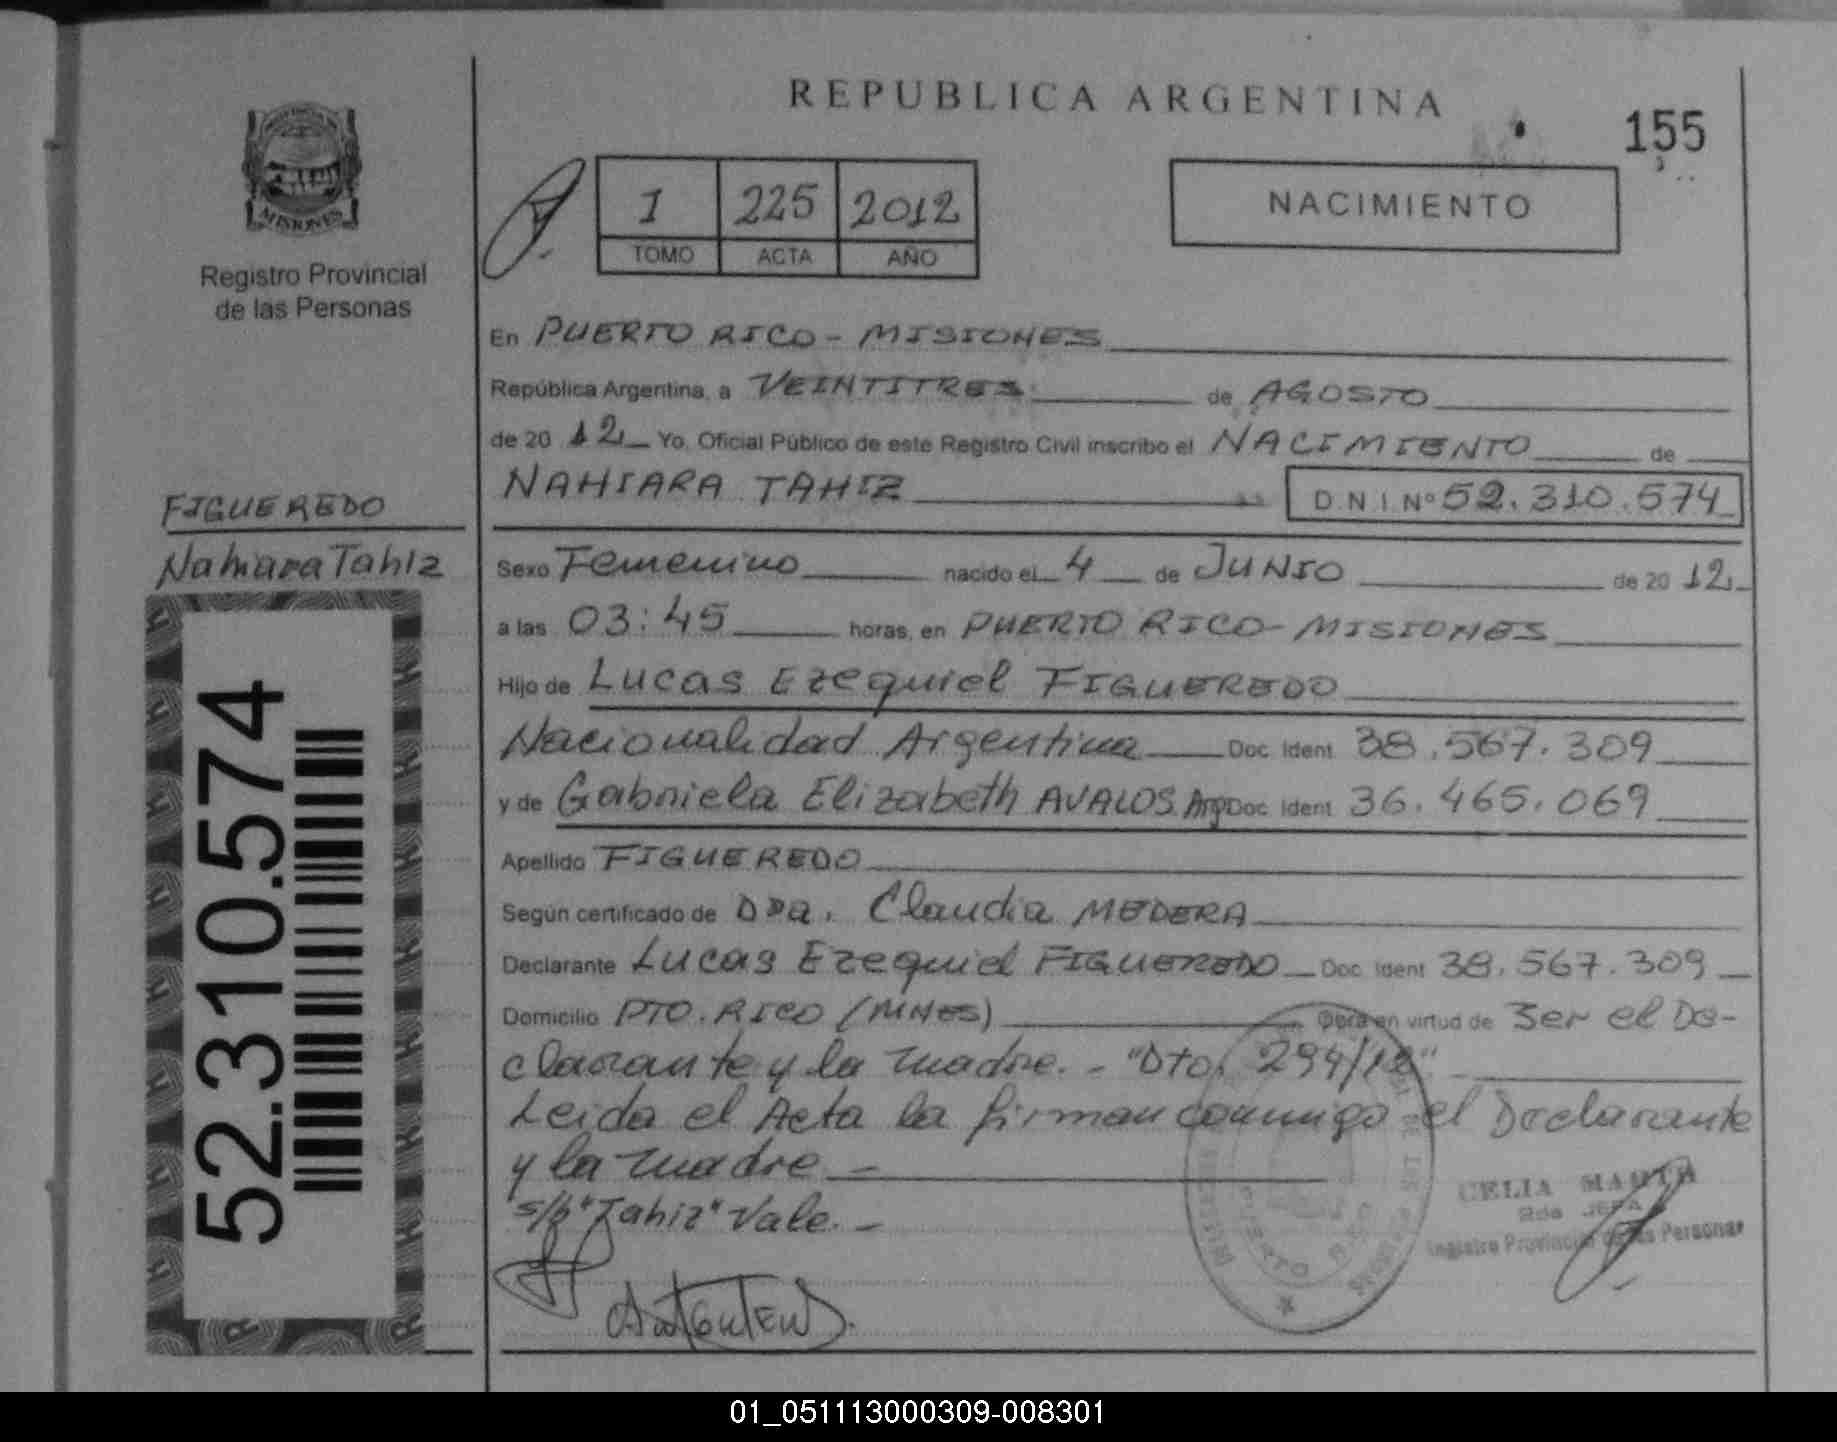 REPUBLICA ARGENTINA
155
MISIONES
Registro Provincial
de las Personas
1 225 2012
TOMO ACTA AÑO
NACIMIENTO
En PUERTO RICO - MISIONES
República Argentina, a VEINTITRES de AGOSTO
de 20 12 Yo, Oficial Público de este Registro Civil inscribo el NACIMIENTO de
NAHIARA TAHIZ D.N.I. Nº 52.310.574
FIGUEREDO
Nahiara Tahiz
52.310.574
Sexo Femenino nacido el 4 de JUNIO de 20 12
a las 03:45 horas, en PUERTO RICO - MISIONES
Hijo de Lucas Ezequiel FIGUEREDO
Nacionalidad Argentina Doc. Ident. 38.567.309
y de Gabriela Elizabeth AVALOS. Arg Doc. Ident. 36.465.069
Apellido FIGUEREDO
Según certificado de Dra. Claudia MEDERA
Declarante Lucas Ezequiel FIGUEREDO Doc. Ident. 38.567.309
Domicilio PTO. RICO (MNES) Obra en virtud de Ser el De-
clarante y la madre. - "Dto. 294/12"
Leida el Acta la firman conmigo el Declarante
y la madre. -
s/b "Tahiz" Vale. -
PUERTO RICO
CELIA
2da JEFA
Registro Provincial de las Personas
01_051113000309-008301